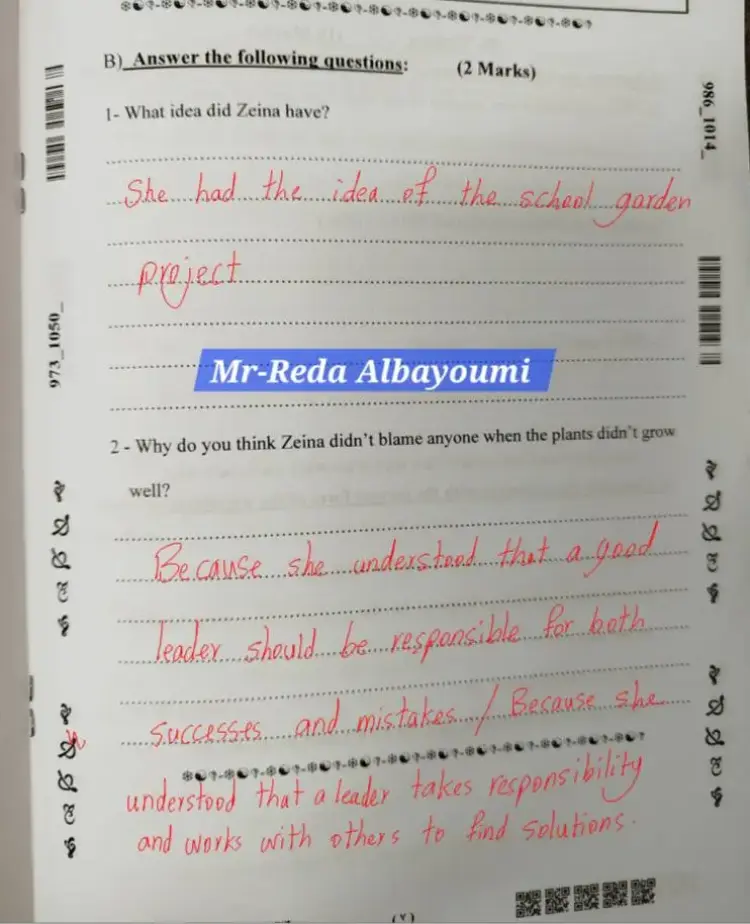 B) Answer the following questions: (2 Marks)
986_1014_
1- What idea did Zeina have?
She had the idea of the school garden
project
973_1050_
Mr-Reda Albayoumi
2 - Why do you think Zeina didn't blame anyone when the plants didn't grow
well?
Because she understood that a good
leader should be responsible for both
successes and mistakes / Because she
understood that a leader takes responsibility
and works with others to find solutions.
(٧)